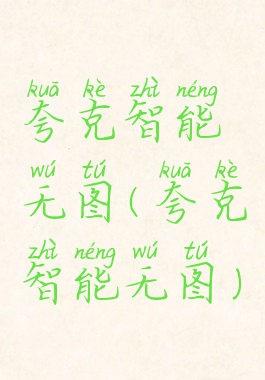 kuā kè zhì néng
夸克智能
wú tú kuā kè
无图(夸克
zhì néng wú tú
智能无图)